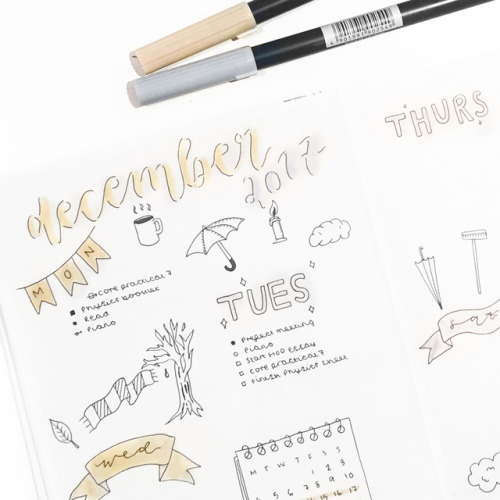 december
2017
THURS
MON
core practical 7
Physics booklet
Read
Piano
TUES
Project meeting
Piano
Start HoD essay
core practical 7
Finish physics sheet
wed
M T W T F S S
1 2 3
4 5 6 7 8 9 10
15 16 17